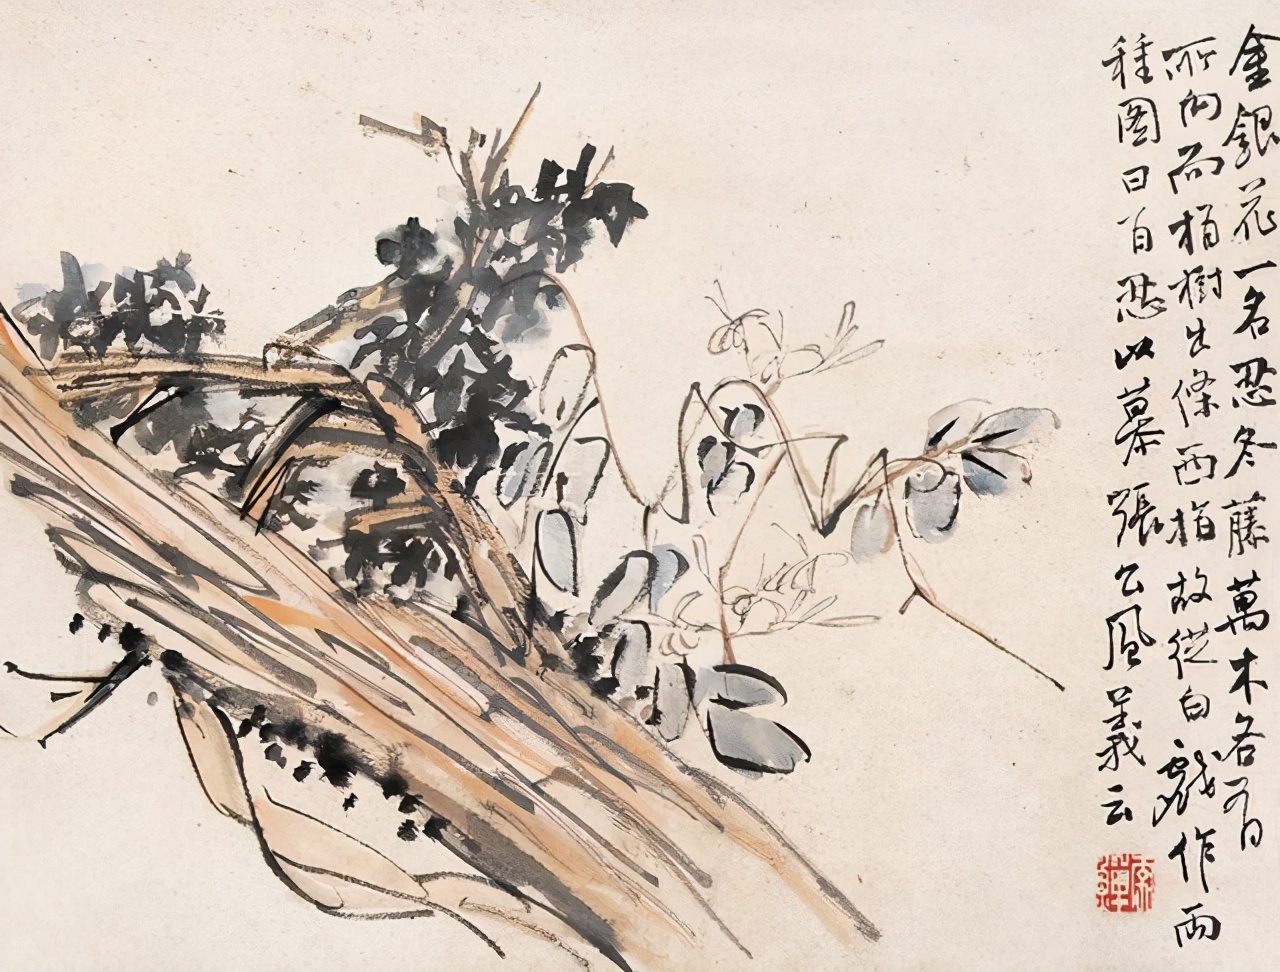 金銀花一名忍冬藤萬木各有
所向而栢樹出條西指故從白戲作兩
種圖曰百忍以慕張公風義云